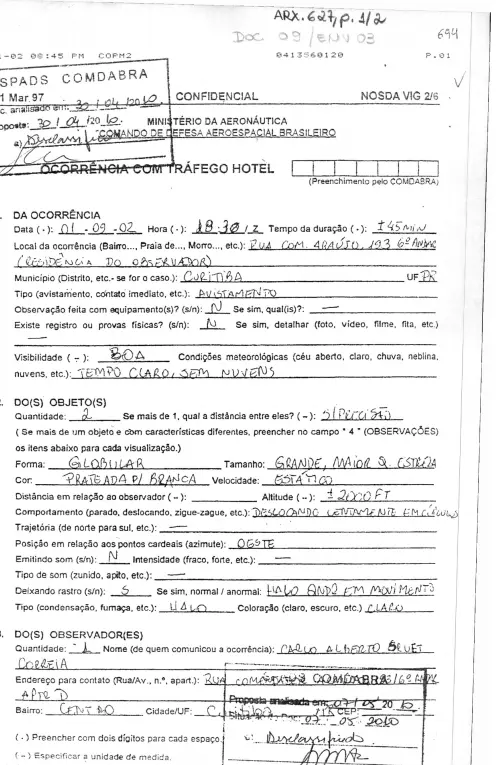 ARX. 627, p. 1/2
DOC 09/ENV 03
694
-02 08:45 PM COPM2 0413560120 P.01
SPADS COMDABRA
1 Mar 97 CONFIDENCIAL NOSDA VIG 2/6
c. analisado em: 30/04/2010
oposta: 30/04/2010. MINISTÉRIO DA AERONÁUTICA
a) COMANDO DE DEFESA AEROESPACIAL BRASILEIRO
OCORRÊNCIA COM TRÁFEGO HOTEL
(Preenchimento pelo COMDABRA)
DA OCORRÊNCIA
Data ( · ): 01 - 09 - 02 Hora ( · ): 18:30 / Z Tempo da duração ( · ): ± 45 MIN
Local da ocorrência (Bairro..., Praia de..., Morro..., etc.): RUA COM. ARAÚJO, 193 6º ANDAR
(RESIDÊNCIA DO OBSERVADOR)
Município (Distrito, etc.- se for o caso.): CURITIBA UF PR
Tipo (avistamento, contato imediato, etc.): AVISTAMENTO
Observação feita com equipamento(s)? (s/n): N Se sim, qual(is)?: —
Existe registro ou provas físicas? (s/n): N Se sim, detalhar (foto, vídeo, filme, fita, etc.)
—
Visibilidade ( ~ ): BOA Condições meteorológicas (céu aberto, claro, chuva, neblina,
nuvens, etc.): TEMPO CLARO, SEM NUVENS
DO(S) OBJETO(S)
Quantidade: 2 Se mais de 1, qual a distância entre eles? ( ~ ): S/ PRECISÃO
( Se mais de um objeto e com características diferentes, preencher no campo " 4 " (OBSERVAÇÕES)
os itens abaixo para cada visualização.)
Forma: GLOBULAR Tamanho: GRANDE, MAIOR Q. ESTRELA
Cor: PRATEADA P/ BRANCA Velocidade: ESTÁTICO
Distância em relação ao observador ( ~ ): Altitude ( ~ ): ± 2000 FT
Comportamento (parado, deslocando, zigue-zague, etc.): DESLOCANDO LENTAMENTE EM CÍRCULOS
Trajetória (de norte para sul, etc.): —
Posição em relação aos pontos cardeais (azimute): OESTE
Emitindo som (s/n): N Intensidade (fraco, forte, etc.): —
Tipo de som (zunido, apito, etc.): —
Deixando rastro (s/n): S Se sim, normal / anormal: HALO QNDO EM MOVIMENTO
Tipo (condensação, fumaça, etc.): HALO Coloração (claro, escuro, etc.) CLARO
DO(S) OBSERVADOR(ES)
Quantidade: 1 Nome (de quem comunicou a ocorrência): CARLO ALBERTO
CORREIA
Endereço para contato (Rua/Av., n.º, apart.): RUA COMDABRA 6º ANDAR
APTO D Proposta analisada em: 07/05 20 10
Bairro: CENTRO Cidade/UF: CEP:
07 05 2010
( · ) Preencher com dois dígitos para cada espaço.
( ~ ) Especificar a unidade de medida.